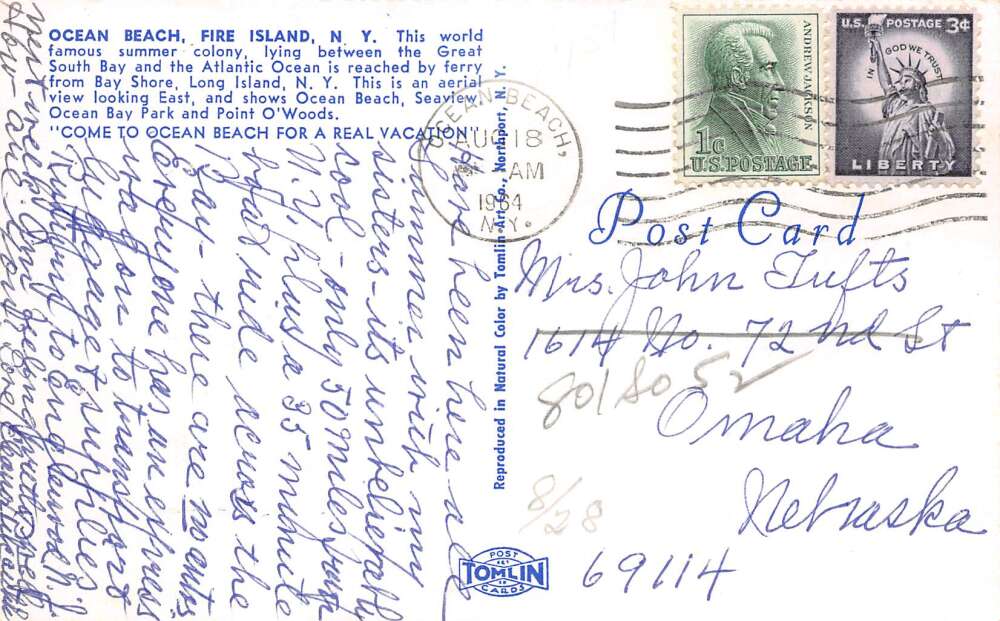 OCEAN BEACH, FIRE ISLAND, N. Y. This world
famous summer colony, lying between the Great
South Bay and the Atlantic Ocean is reached by ferry
from Bay Shore, Long Island, N. Y. This is an aerial
view looking East, and shows Ocean Beach, Seaview,
Ocean Bay Park and Point O'Woods.
"COME TO OCEAN BEACH FOR A REAL VACATION"
Have been here all
summer with my
sisters - its unbelievably
cool - only 50 miles from
N.Y. plus a 35 minute
boat ride across the
Bay - there are no autos
Everyone has an express
wagon to transport
luggage & supplies
Running to Englewood N.J.
next week
How are
Love
Reproduced in Natural Color by Tomlin Art Co., Northport, N. Y.
OCEAN BEACH,
AUG 18
AM
1964
N.Y.
ANDREW JACKSON
1¢
U.S. POSTAGE
U.S. POSTAGE 3¢
IN GOD WE TRUST
LIBERTY
Post Card
Mrs. John Tufts
1614 No. 72nd St
8018052
Omaha
Nebraska
69114
8/28
POST
TOMLIN
CARDS